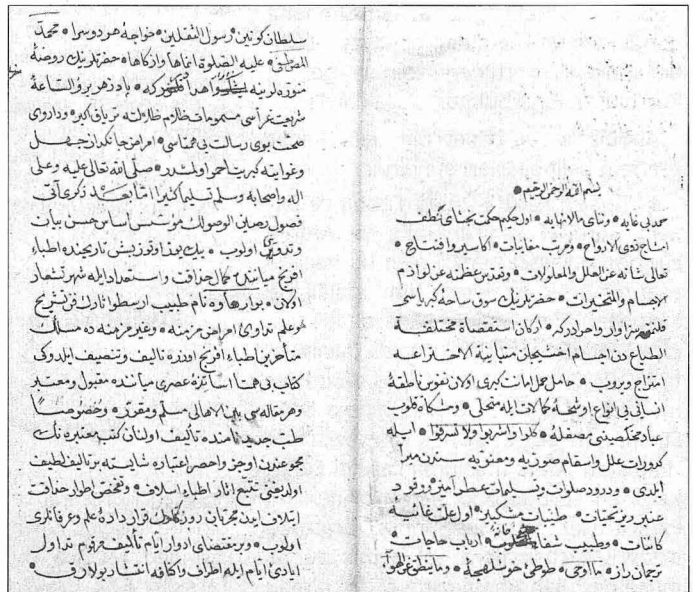 بسم الله الرحمن الرحيم
حمد بی غایه و ثنای مالانهایه اول حکیم حکمت بخشای نطف
امشاج ذوی الارواح و مرتب مقابنات اکاسیر و افتتاح
تعالی شانه عن العلل والمعلولات و تقدس عظمته عن لوازم
الاجسام والتحیزات حضرتلرینک سوق ساحهٔ کبریاسی
قلنمق سزاوار واحرادرکه ارکان استقصاة مختلفة
الطباع دن اجسام اخشیجان متباینة الاختراعه
امتزاج ویروب حامل حمل امانت کبری اولان نفوس ناطقهٔ
انسانی بی انواع اوشحهٔ کمالات ایله متحلی و مشکاة قلوب
عباد مخلصینی مصقلهٔ کلوا واشربوا ولا تسرفوا ایله
کدورات علل واسقام صوریه و معنویه سندن مبرا
ایلدی و درود صلوات و تسلیمات عطر آمیز و وفود
عنبر ریز تحیات طیبات مشکبیز اول علت غائیهٔ
کائنات و طبیب شفا ارباب حاجات
ترجمان راز ما اوحی طوطئ خوش لهجهٔ وما ینطق عن الهوا
سلطان کونین و رسول الثقلین خواجهٔ هر دو سرا محمد
المصطفی علیه الصلوة اتمها و ازکاها حضرتلرینک روضهٔ
منوره لرینه اهدا که پادزهر برؤ الساعهٔ
شریعت غراسی مسمومات ظلام ضلالته تریاق اکبر و داروی
صحت بوی رسالت بی همتاسی امراض جانکداز جهل
و غوایته کبریت احمر اولمشدر صلی الله تعالی علیه وعلی
اله واصحابه وسلم تسلیما کثیرا اما بعد ذکری آتی
فصول رصین الوصولک مؤسس اساس حسن بیان
و تدوینی اولوب بیک یوز اوتوز بش تاریخنده اطباء
افرنج میاننده کمال حذاقت و استعداد ایله شهرتشعار
اولان بوارهاوه نام طبیب ارسطو آثارک فن تشریح
و علم تداوئ امراض مزمنه و غیر مزمنه ده مسلک
متأخرین اطباء افرنج اوزره تالیف و تصنیف ایلدوکی
کتاب بی همتا اساتذهٔ عصری میاننده مقبول و معتبر
و هر مقاله سی بین الاهالی مسلم و مقرر و خصوصا
طب جدید نامنده تألیف اولنان کتب معتبره نک
مجموعندن اوجز واحصر اعتباره شایسته بر تالیف لطیف
اولدیغنی تتبع آثار اطباء اسلاف و تفحص اطوار حذاقت
ایتلاف ایدن مجربان روزکارک قرار دادهٔ علم و عرفانلری
اولوب و بر مقتضای ادوار ایام تألیف مرقوم تداول
ایادئ ایام ایله اطراف و اکنافه انتشار بولارق